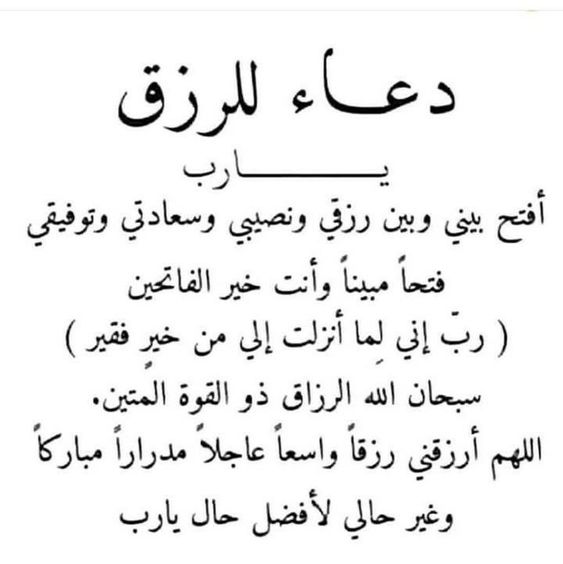 دعــاء للرزق
يـــــــارب
أفتح بيني وبين رزقي ونصيبي وسعادتي وتوفيقي
فتحاً مبيناً وأنت خير الفاتحين
( ربّ إني لِما أنزلت إلي من خيرٍ فقير )
سبحان الله الرزاق ذو القوة المتين.
اللهم أرزقني رزقاً واسعاً عاجلاً مدراراً مباركاً
وغير حالي لأفضل حال يارب